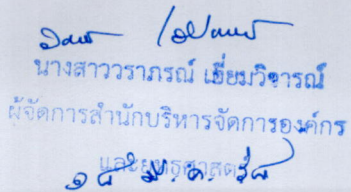 นางสาววราภรณ์ เอี่ยมวิจารณ์
ผู้จัดการสำนักบริหารจัดการองค์กร
และยุทธศาสตร์
๑๘ มี.ค. ๖๘